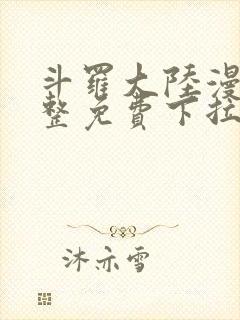 斗羅大陸漫
整免費下拉
沐亦雪